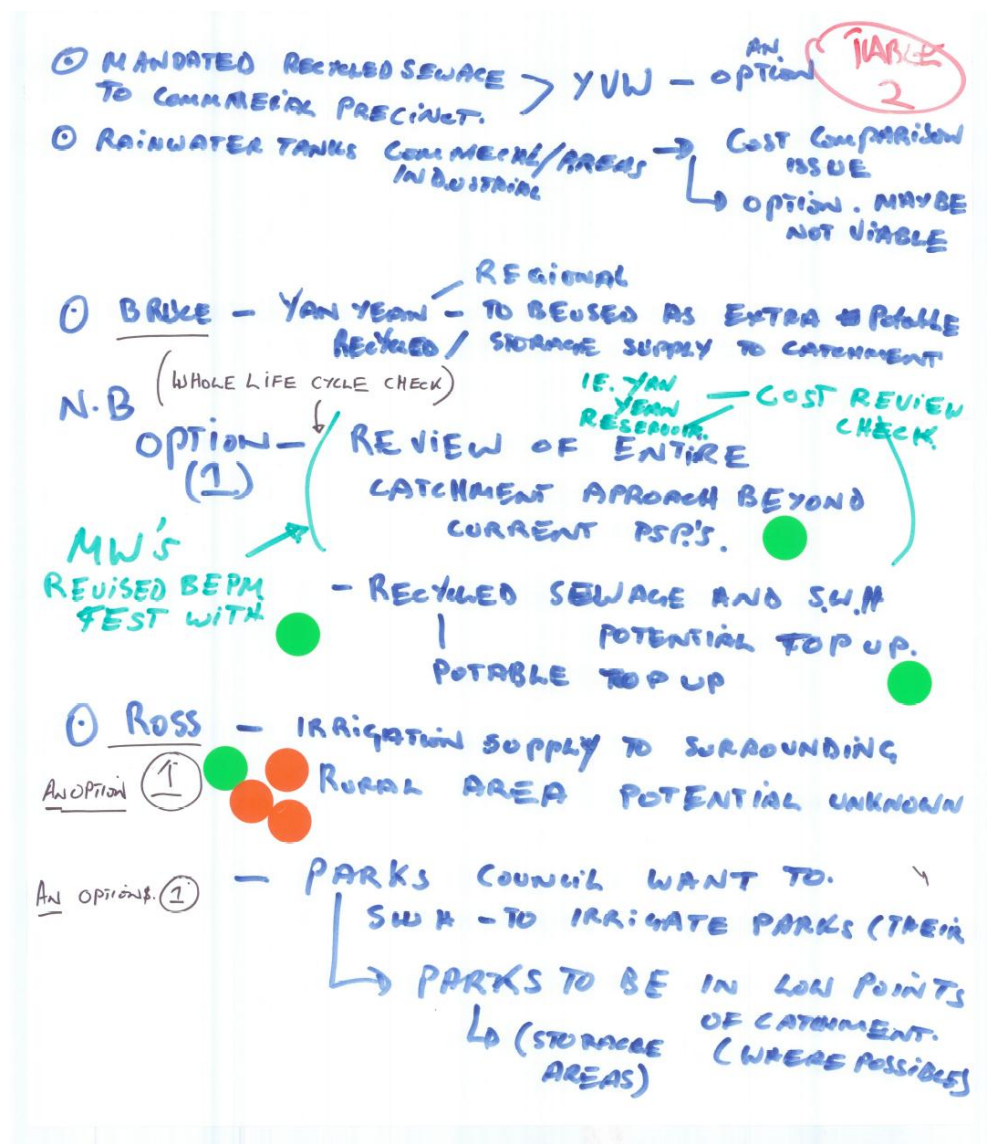 TABLE
2
MANDATED RECYCLED SEWAGE
TO COMMERCIAL PRECINCT. > YVW - AN OPTION
RAINWATER TANKS COMMERCIAL/AREAS → COST COMPARISON
INDUSTRIAL
ISSUE
↳ OPTION. MAYBE
NOT VIABLE
REGIONAL
BRUCE - YAN YEAN - TO BE USED AS EXTRA POTABLE
RECYCLED / STORAGE SUPPLY TO CATCHMENT
(WHOLE LIFE CYCLE CHECK)
IE. YAN
YEAN
RESERVOIR.
- COST REVIEW
CHECK
N.B
OPTION - REVIEW OF ENTIRE
(1)
CATCHMENT APROACH BEYOND
CURRENT PSP'S.
MW'S
REVISED BEPM
TEST WITH
- RECYCLED SEWAGE AND S.W.H
POTENTIAL TOP UP.
POTABLE TOP UP
ROSS - IRRIGATION SUPPLY TO SURROUNDING
AN OPTION 1
RURAL AREA POTENTIAL UNKNOWN
AN OPTIONS. 1
- PARKS COUNCIL WANT TO.
SWH - TO IRRIGATE PARKS (THEIR
↳ PARKS TO BE IN LOW POINTS
OF CATCHMENT.
↳ (STORAGE
AREAS)
(WHERE POSSIBLE)